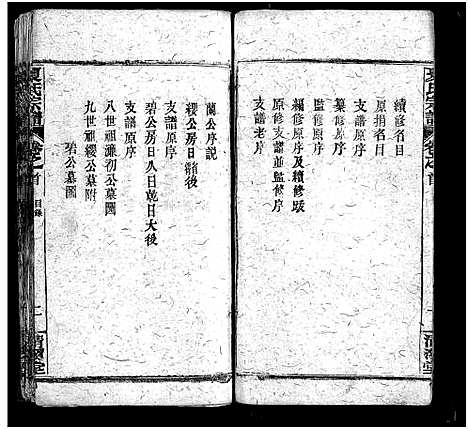 續修名目
原捐名目
支譜原序
纂修原序
監修原序
續修原序及續修跋
原修支譜並監修序
支譜老序
蘭公序說
綬公房日脩後
支譜原序
碧公房日八日乾日大後
支譜原序
八世祖濰初公墓圖
九世祖綬公墓附
碧公墓圖
夏氏宗譜
卷之首
目錄
清潔堂